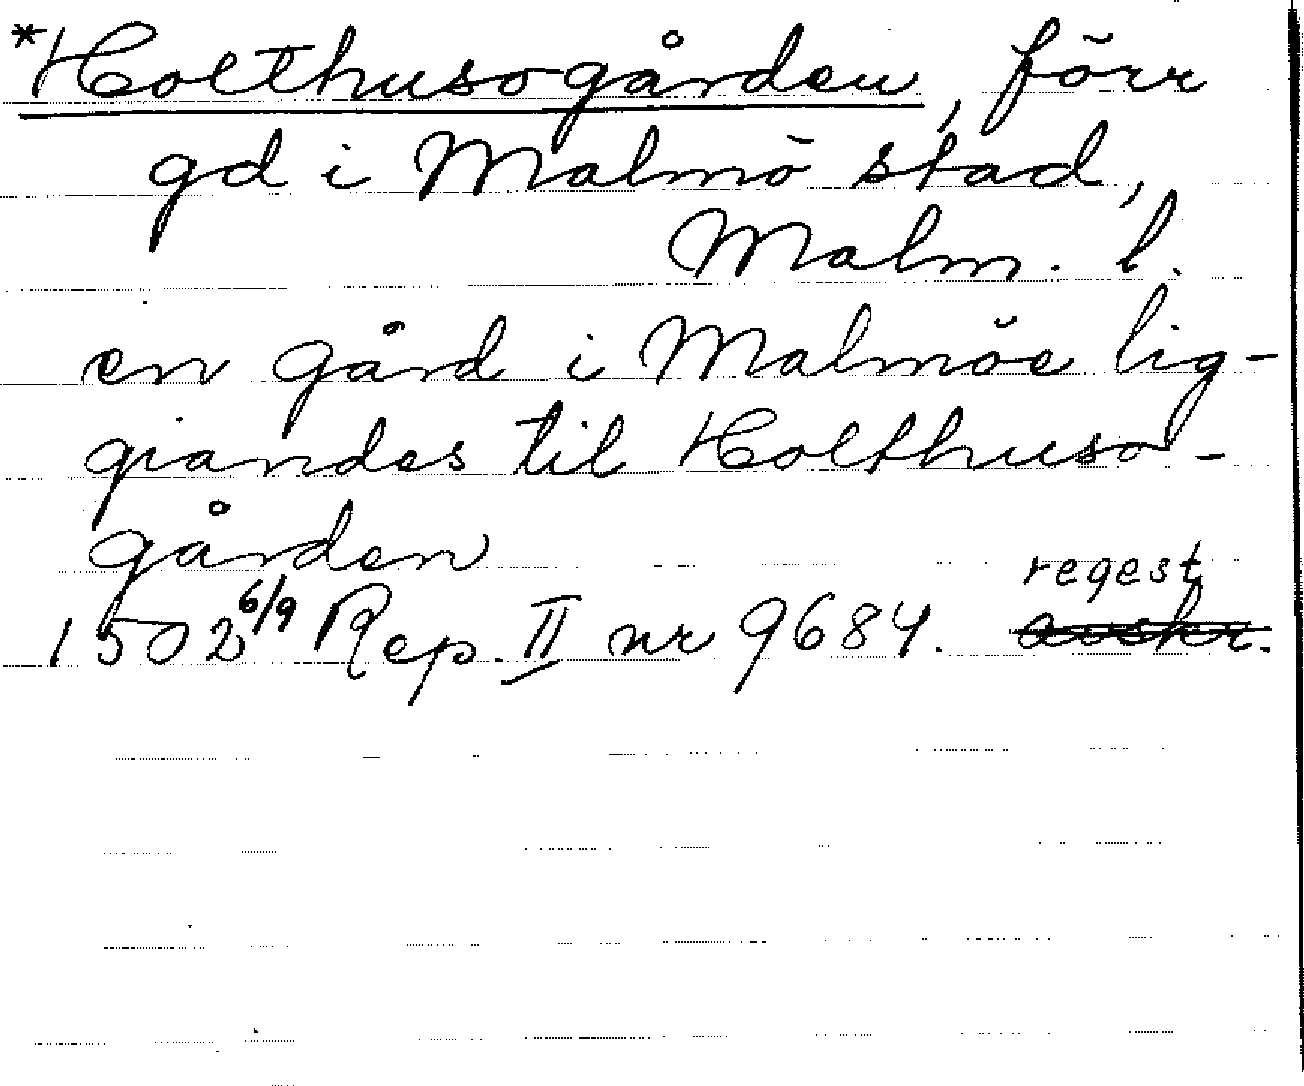 *Holthusogården, förr
gd i Malmö stad,
Malm. l.
en gård i Malmöe lig-
giandes til Holthuso-
gården
regest
1502 6/9 Rep. II nr 9684. avskr.